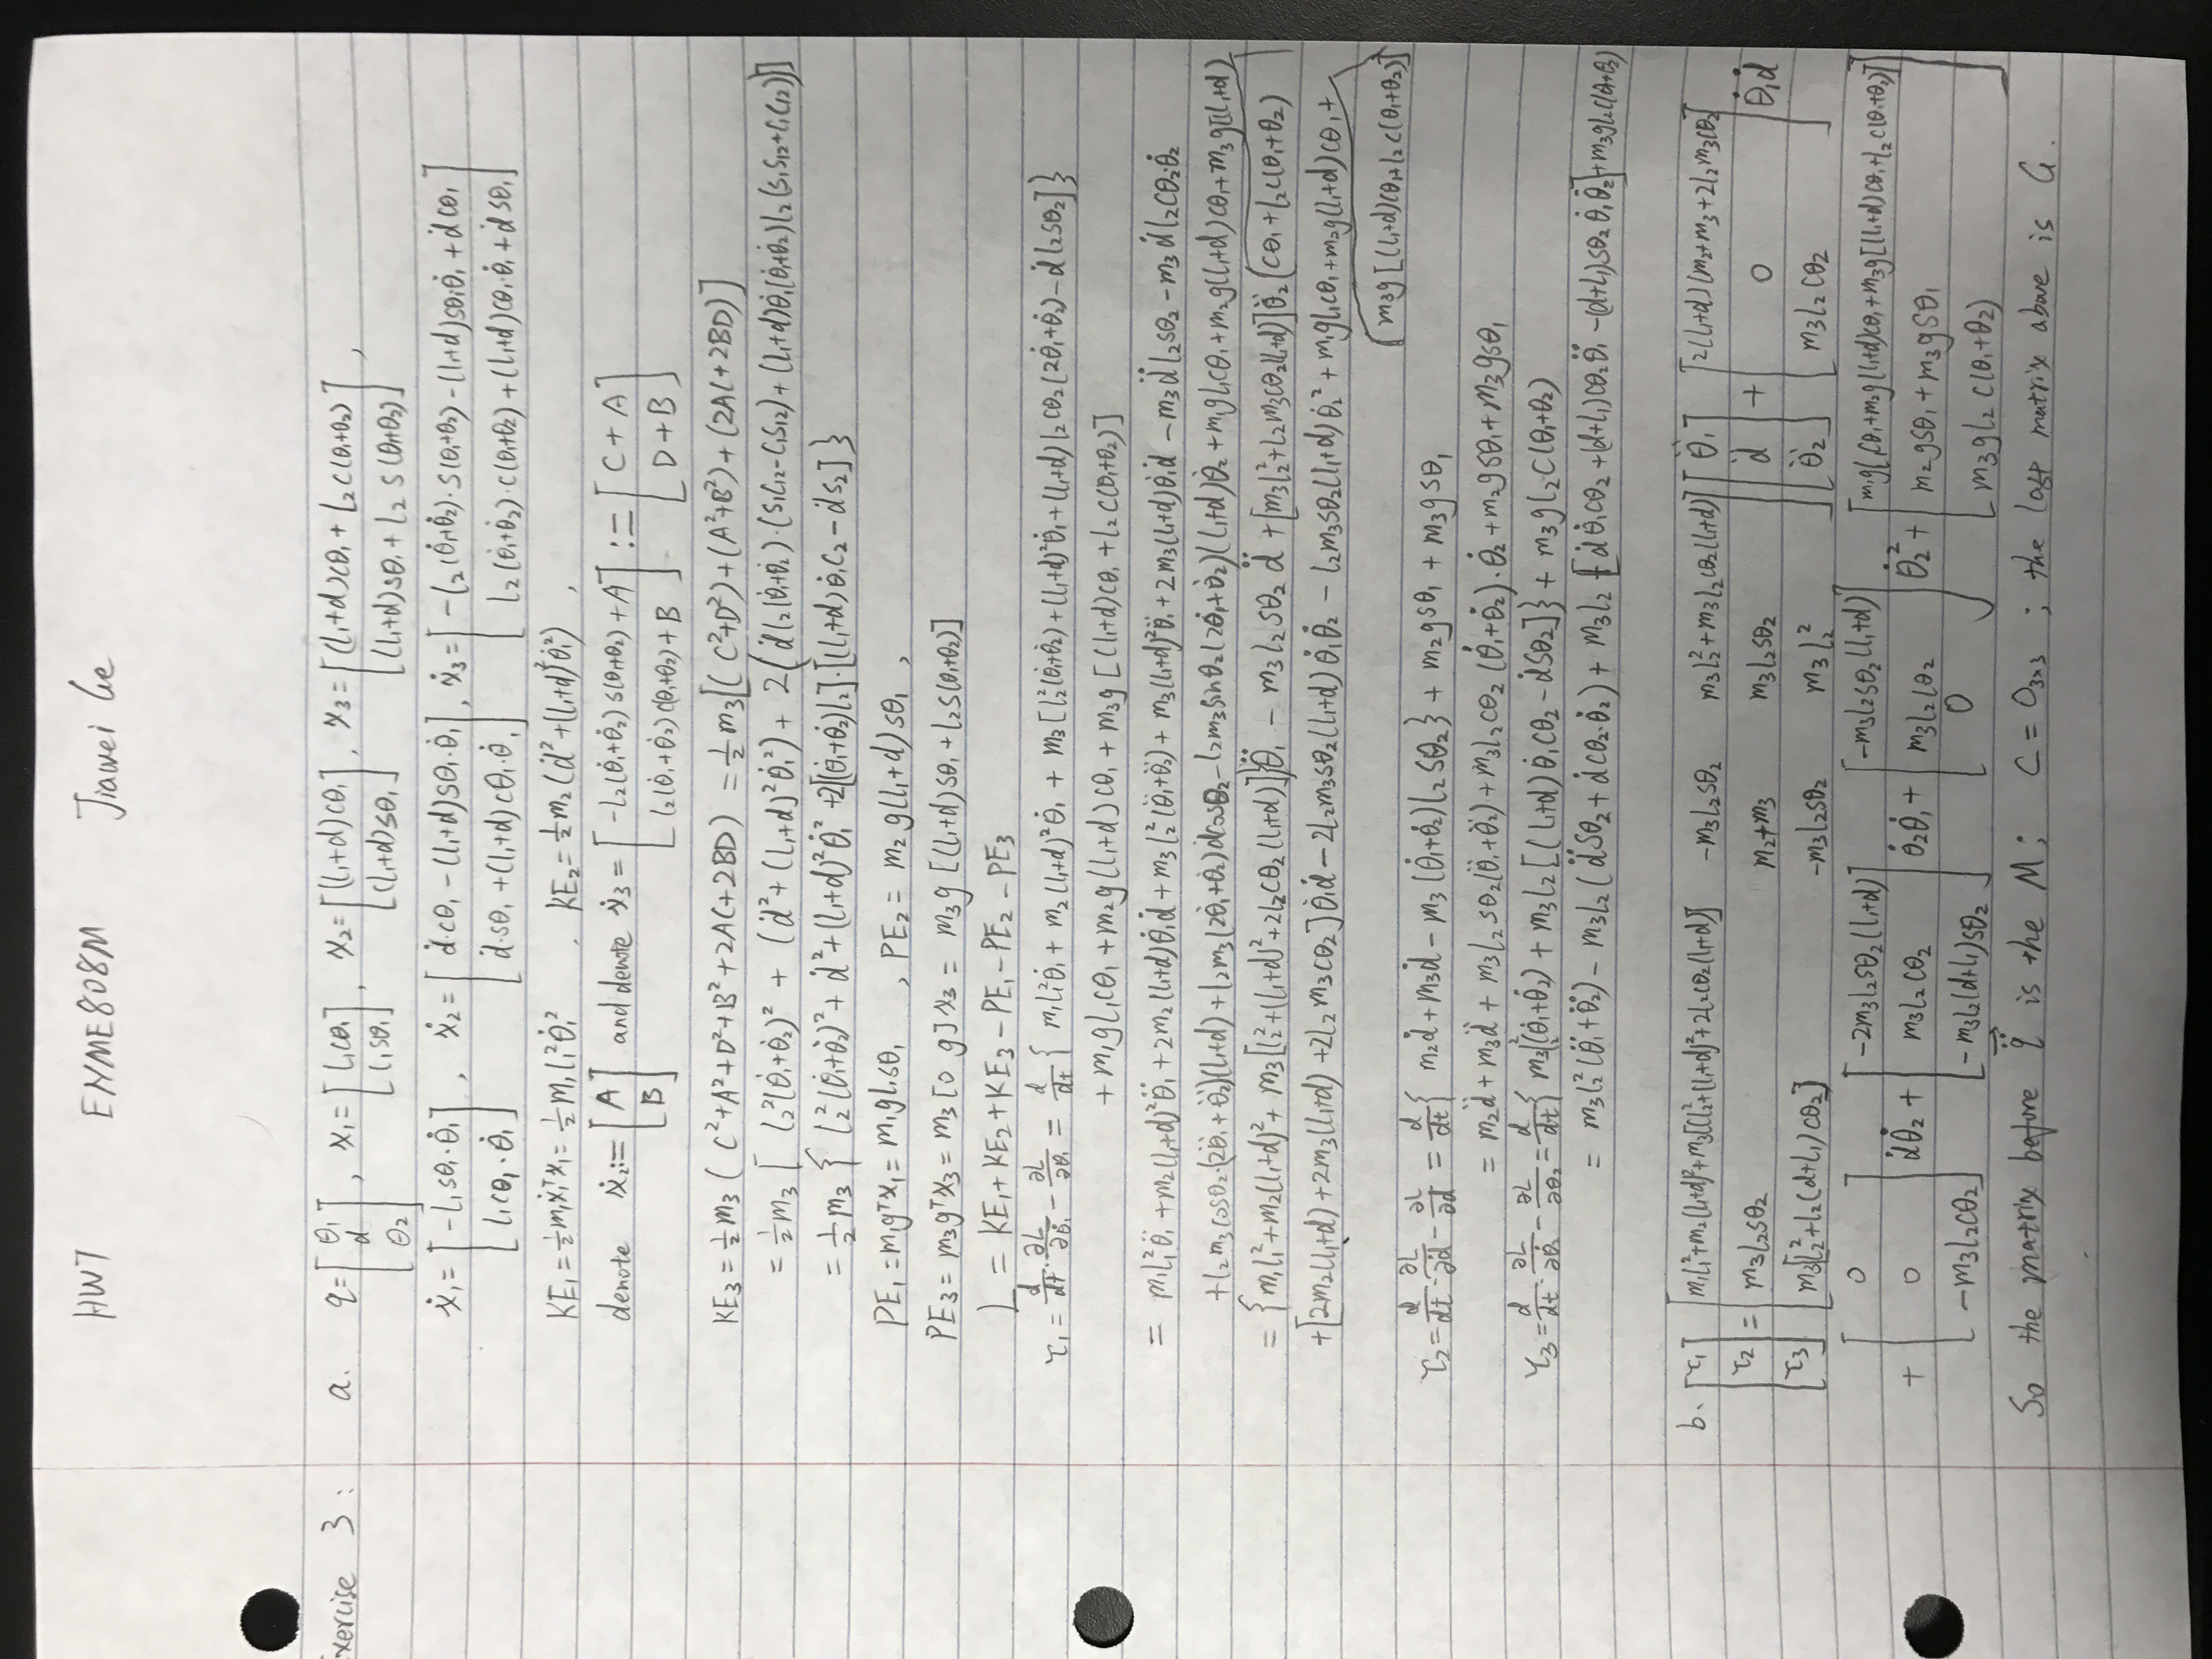 HW7 ENME808M Jiawei Ge
Exercise 3: a. q=[θ₁; d; θ₂], x₁=[l₁cθ₁; l₁sθ₁], x₂=[(l₁+d)cθ₁; (l₁+d)sθ₁], x₃=[(l₁+d)cθ₁+l₂c(θ₁+θ₂); (l₁+d)sθ₁+l₂s(θ₁+θ₂)],
ẋ₁=[-l₁sθ₁·θ̇₁; l₁cθ₁·θ̇₁], ẋ₂=[ḋ·cθ₁-(l₁+d)sθ₁·θ̇₁; ḋ·sθ₁+(l₁+d)cθ₁·θ̇₁], ẋ₃=[-l₂(θ̇₁+θ̇₂)·s(θ₁+θ₂)-(l₁+d)sθ₁θ̇₁+ḋcθ₁; l₂(θ̇₁+θ̇₂)·c(θ₁+θ₂)+(l₁+d)cθ₁·θ̇₁+ḋsθ₁]
KE₁=½m₁ẋ₁ᵀx₁=½m₁l₁²θ̇₁², KE₂=½m₂(ḋ²+(l₁+d)²θ̇₁²),
denote ẋ₂:=[A; B] and denote ẋ₃=[-l₂(θ̇₁+θ̇₂)s(θ₁+θ₂)+A; l₂(θ̇₁+θ̇₂)c(θ₁+θ₂)+B]:=[C+A; D+B]
KE₃=½m₃(C²+A²+D²+B²+2AC+2BD)=½m₃[(C²+D²)+(A²+B²)+(2AC+2BD)]
=½m₃[l₂²(θ̇₁+θ̇₂)²+(ḋ²+(l₁+d)²θ̇₁²)+2(ḋl₂(θ̇₁+θ̇₂)·(s₁c₁₂-c₁s₁₂)+(l₁+d)θ̇₁(θ̇₁+θ̇₂)l₂(s₁s₁₂+c₁c₁₂))]
=½m₃{l₂²(θ̇₁+θ̇₂)²+ḋ²+(l₁+d)²θ̇₁²+2[(θ̇₁+θ̇₂)l₂]·[(l₁+d)θ̇₁c₂-ḋs₂]}
PE₁=m₁gᵀx₁=m₁gl₁sθ₁, PE₂=m₂g(l₁+d)sθ₁,
PE₃=m₃gᵀx₃=m₃[0 g]x₃=m₃g[(l₁+d)sθ₁+l₂s(θ₁+θ₂)]
L=KE₁+KE₂+KE₃-PE₁-PE₂-PE₃
τ₁=d/dt·∂L/∂θ̇₁-∂L/∂θ₁=d/dt{m₁l₁²θ̇₁+m₂(l₁+d)²θ̇₁+m₃[l₂²(θ̇₁+θ̇₂)+(l₁+d)²θ̇₁+(l₁+d)l₂cθ₂(2θ̇₁+θ̇₂)-ḋl₂sθ₂]}
+m₁gl₁cθ₁+m₂g(l₁+d)cθ₁+m₃g[(l₁+d)cθ₁+l₂c(θ₁+θ₂)]
=m₁l₁²θ̈₁+m₂(l₁+d)²θ̈₁+2m₂(l₁+d)θ̇₁ḋ+m₃l₂²(θ̈₁+θ̈₂)+m₃(l₁+d)²θ̈₁+2m₃(l₁+d)θ̇₁ḋ-m₃d̈l₂sθ₂-m₃ḋl₂cθ₂·θ̇₂
+l₂m₃cosθ₂·(2θ̈₁+θ̈₂)(l₁+d)+l₂m₃(2θ̇₁+θ̇₂)ḋcosθ₂-l₂m₃sinθ₂(2θ̇₁+θ̇₂)(l₁+d)θ̇₂+m₁gl₁cθ₁+m₂g(l₁+d)cθ₁+m₃g[(l₁+d)
={m₁l₁²+m₂(l₁+d)²+m₃[l₂²+(l₁+d)²+2l₂cθ₂(l₁+d)]}θ̈₁-m₃l₂sθ₂d̈+[m₃l₂²+l₂m₃cθ₂(l₁+d)]θ̈₂ (cθ₁+l₂c(θ₁+θ₂)
+[2m₂(l₁+d)+2m₃(l₁+d)+2l₂m₃cθ₂]θ̇₁ḋ-2l₂m₃sθ₂(l₁+d)θ̇₁θ̇₂-l₂m₃sθ₂(l₁+d)θ̇₂²+m₁gl₁cθ₁+m₂g(l₁+d)cθ₁+
m₃g[(l₁+d)cθ₁+l₂c(θ₁+θ₂)]
τ₂=d/dt·∂L/∂ḋ-∂L/∂d=d/dt{m₂ḋ+m₃ḋ-m₃(θ̇₁+θ̇₂)l₂sθ₂}+m₂gsθ₁+m₃gsθ₁
=m₂d̈+m₃d̈+m₃l₂sθ₂(θ̈₁+θ̈₂)+m₃l₂cθ₂(θ̇₁+θ̇₂)·θ̇₂+m₂gsθ₁+m₃gsθ₁
τ₃=d/dt·∂L/∂θ̇₂-∂L/∂θ₂=d/dt{m₃l₂²(θ̇₁+θ̇₂)+m₃l₂[(l₁+d)θ̇₁cθ₂-ḋsθ₂]}+m₃gl₂c(θ₁+θ₂)
=m₃l₂²(θ̈₁+θ̈₂)-m₃l₂(d̈sθ₂+ḋcθ₂·θ̇₂)+m₃l₂[ḋθ̇₁cθ₂+(d+l₁)cθ₂θ̈₁-(d+l₁)sθ₂θ̇₁θ̇₂]+m₃gl₂c(θ₁+θ₂)
b. [τ₁; τ₂; τ₃]=[m₁l₁²+m₂(l₁+d)²+m₃[l₂²+(l₁+d)²+2l₂cθ₂(l₁+d)] -m₃l₂sθ₂ m₃l₂²+m₃l₂cθ₂(l₁+d); m₃l₂sθ₂ m₂+m₃ m₃l₂sθ₂; m₃[l₂²+l₂(d+l₁)cθ₂] -m₃l₂sθ₂ m₃l₂²][θ̈₁; d̈; θ̈₂]+[2(l₁+d)(m₂+m₃+2l₂m₃cθ₂; 0; m₃l₂cθ₂]θ̇₁ḋ
+[0; 0; -m₃l₂cθ₂]ḋθ̇₂+[-2m₃l₂sθ₂(l₁+d); m₃l₂cθ₂; -m₃l₂(d+l₁)sθ₂]θ̇₂θ̇₁+[-m₃l₂sθ₂(l₁+d); m₃l₂cθ₂; 0]θ̇₂²+[m₁gl₁cθ₁+m₂g(l₁+d)cθ₁+m₃g[(l₁+d)cθ₁+l₂c(θ₁+θ₂)]; m₂gsθ₁+m₃gsθ₁; m₃gl₂c(θ₁+θ₂)]
So the matrix before q̈ is the M; C=O₃ₓ₃; the last matrix above is G.